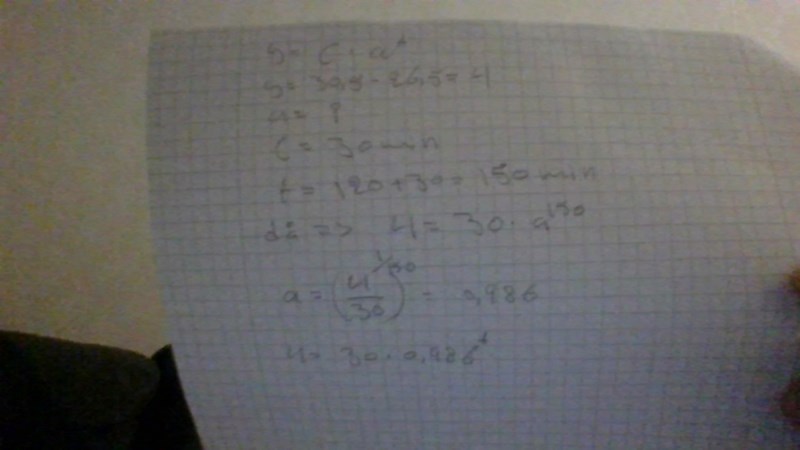 y = C · a^t
a = ?
C = 30 min
t = 120 + 30 = 150 min
=> 4 = 30 · a^150
a = (4/30)^1/150 = 0,986
4 = 30 · 0,986^t